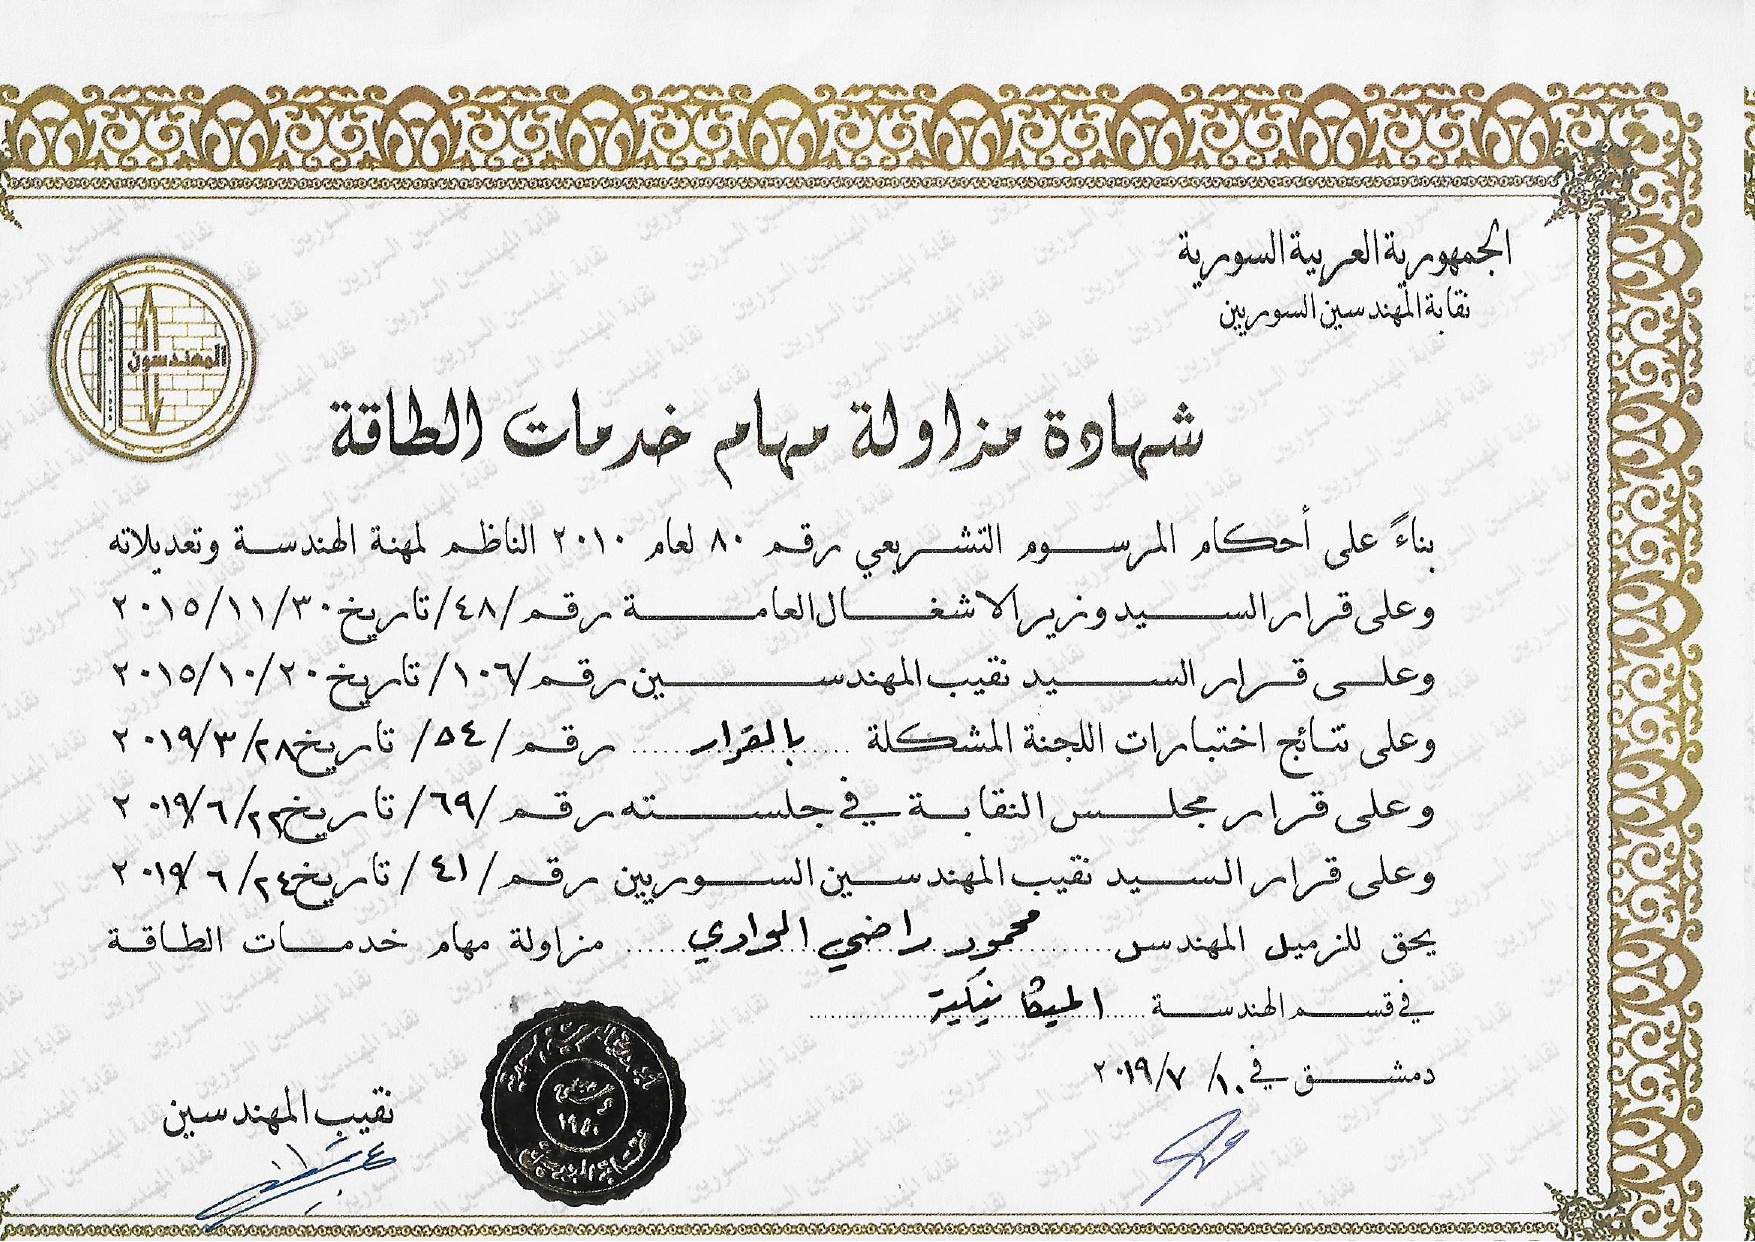 الجمهورية العربية السورية
نقابة المهندسين السوريين
المهندسون
شهادة مزاولة مهام خدمات الطاقة
بناءً على أحكام المرسوم التشريعي رقم ٨٠ لعام ٢٠١٠ الناظم لمهنة الهندسة وتعديلاته
وعلى قرار السيد وزير الاشغال العامة رقم /٤٨/ تاريخ ٢٠١٥/١١/٣٠
وعلى قرار السيد نقيب المهندسين رقم /١٠٦/ تاريخ ٢٠١٥/١٠/٢٠
وعلى نتائج اختبارات اللجنة المشكلة بالقرار رقم /٥٤/ تاريخ ٢٠١٩/٣/٢٨
وعلى قرار مجلس النقابة في جلسته رقم /٦٩/ تاريخ ٢٠١٩/٦/٢٢
وعلى قرار السيد نقيب المهندسين السوريين رقم /٤١/ تاريخ ٢٠١٩/٦/٢٤
يحق للزميل المهندس محمود راضي الوادي مزاولة مهام خدمات الطاقة
في قسم الهندسة الميكانيكية
دمشق في ٢٠١٩/٧/١٠
نقيب المهندسين